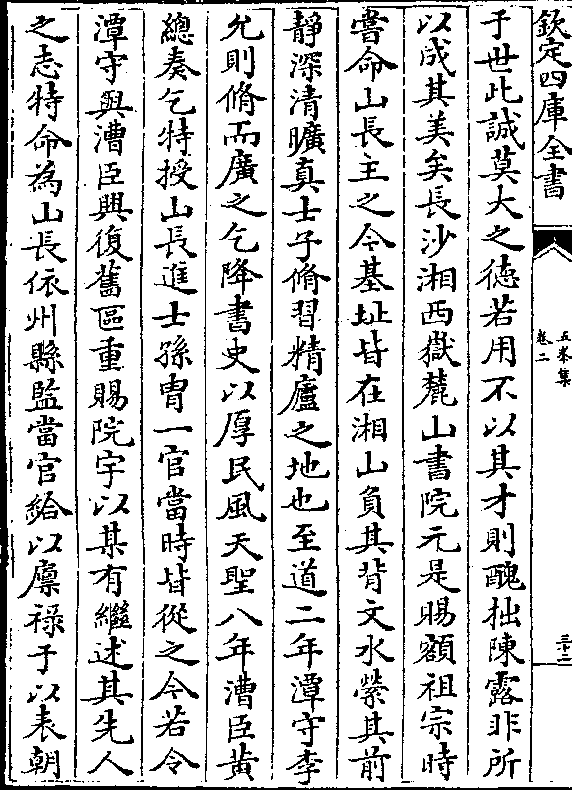 欽定四庫全書
五峯集
卷二
三十二
于世此誠莫大之德若用不以其才則醜拙陳露非所
以成其美矣長沙湘西嶽麓山書院元是賜額祖宗時
嘗命山長主之今基址皆在湘山負其背文水縈其前
静深清曠真士子脩習精廬之地也至道二年潭守李
允則脩而廣之乞降書史以厚民風天聖八年漕臣黄
總奏乞特授山長進士孫胄一官當時皆從之今若令
潭守與漕臣興復舊區重賜院宇以某有繼述其先人
之志特命為山長依州縣監當官給以廪禄于以表朝